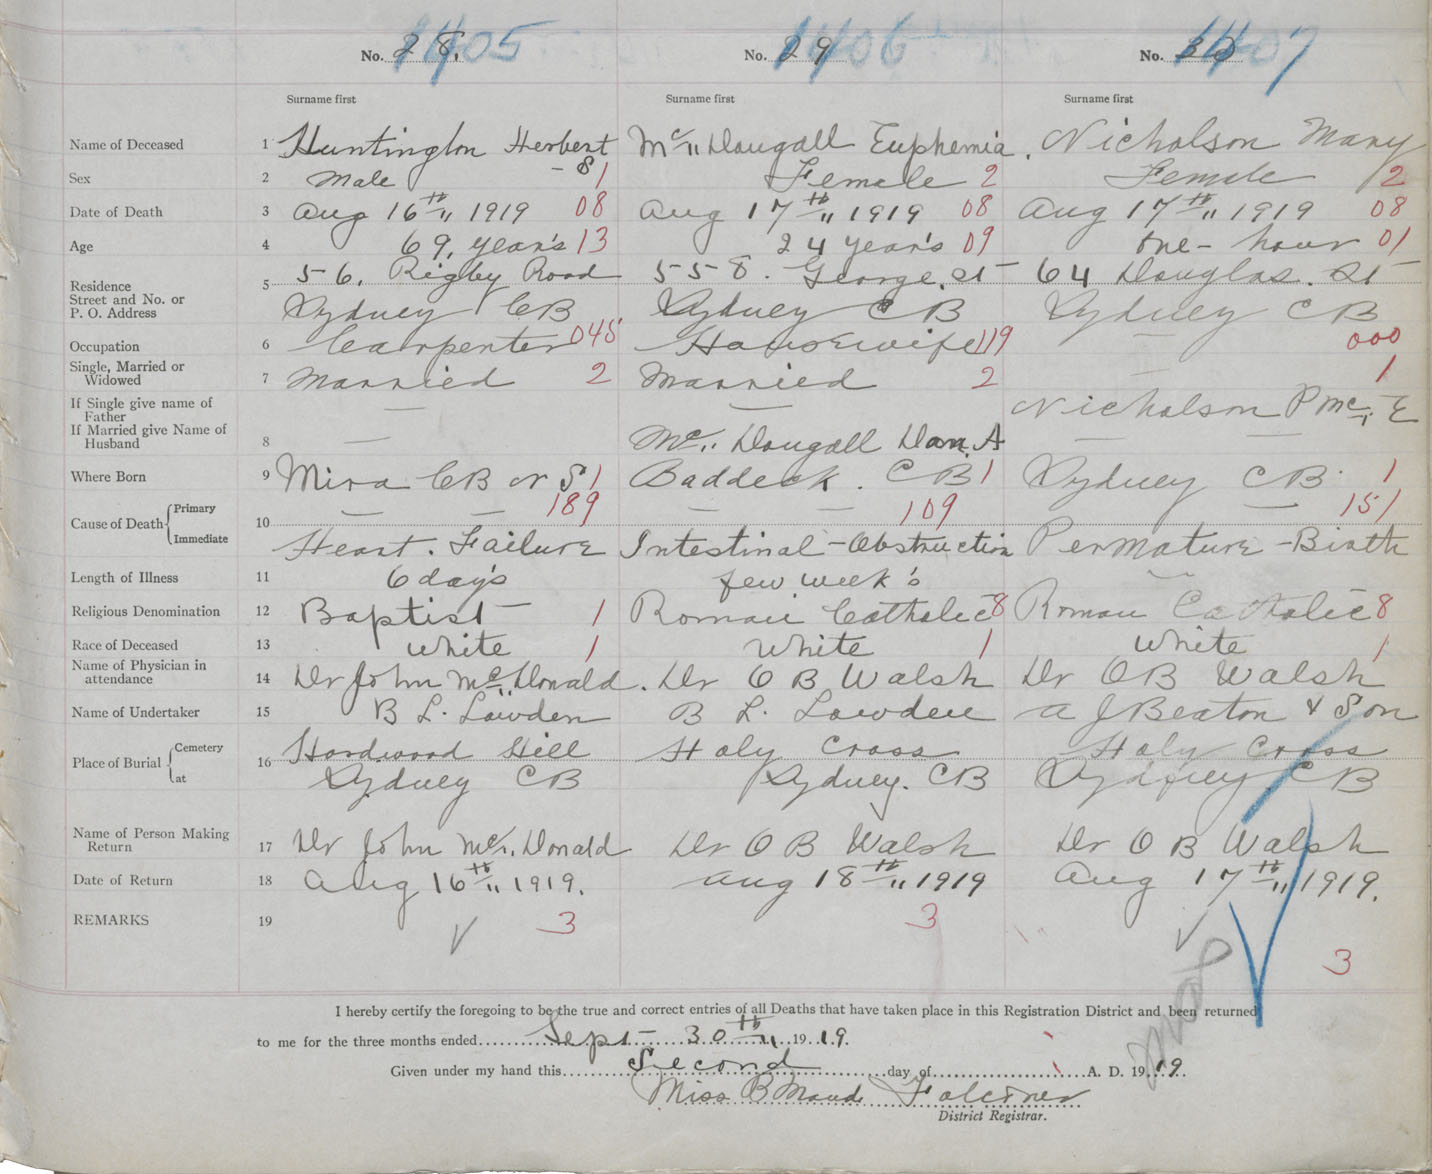 1405 1406 1407
No. 28. No. 29 No. 30
Surname first Surname first Surname first
Name of Deceased 1 Huntington Herbert McDougall Euphemia. Nicholson Mary
Sex 2 Male - 8 1 Female 2 Female 2
Date of Death 3 Aug 16th 1919 08 Aug 17th 1919 08 Aug 17th 1919 08
Age 4 69, year's 13 24 year's 09 one - hour 01
Residence Street and No. or P. O. Address 5 56, Rigby Road 558. George. St 64 Douglas. St
Sydney CB Sydney CB Sydney CB
Occupation 6 Carpenter 045 Housewife 119 — 000
Single, Married or Widowed 7 Married 2 Married 2 — 1
If Single give name of Father — — Nicholson P Mc E
If Married give Name of Husband 8 — McDougall Dan. A — —
Where Born 9 Mira CB or S 1 Baddeck. CB 1 Sydney CB 1
Cause of Death Primary 10 — — 189 — — 109 — 151
Immediate Heart. Failure Intestinal - Obstruction Permature - Birth
Length of Illness 11 6 day's few week's
Religious Denomination 12 Baptist 1 Roman Catholic 8 Roman Catholic 8
Race of Deceased 13 White 1 White 1 White 1
Name of Physician in attendance 14 Dr John McDonald. Dr O B Walsh Dr O B Walsh
Name of Undertaker 15 B L. Lowden B L. Lowden A J Beaton & Son
Place of Burial Cemetery 16 Hardwood Hill Holy Cross Holy Cross
at Sydney CB Sydney. CB Sydney CB
Name of Person Making Return 17 Dr John McDonald Dr O B Walsh Dr O B Walsh
Date of Return 18 Aug 16th 1919. Aug 18th 1919 Aug 17th 1919.
REMARKS 19 3 3 3
I hereby certify the foregoing to be the true and correct entries of all Deaths that have taken place in this Registration District and been returned
to me for the three months ended Sept 30th 1919.
Given under my hand this Second day of A. D. 1919.
Miss B Maude Falconer
District Registrar.